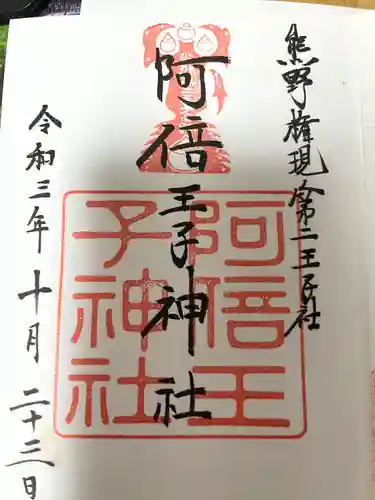 熊野権現第二王子社
阿倍王子神社
令和三年十月二十三日
阿倍王
子神社